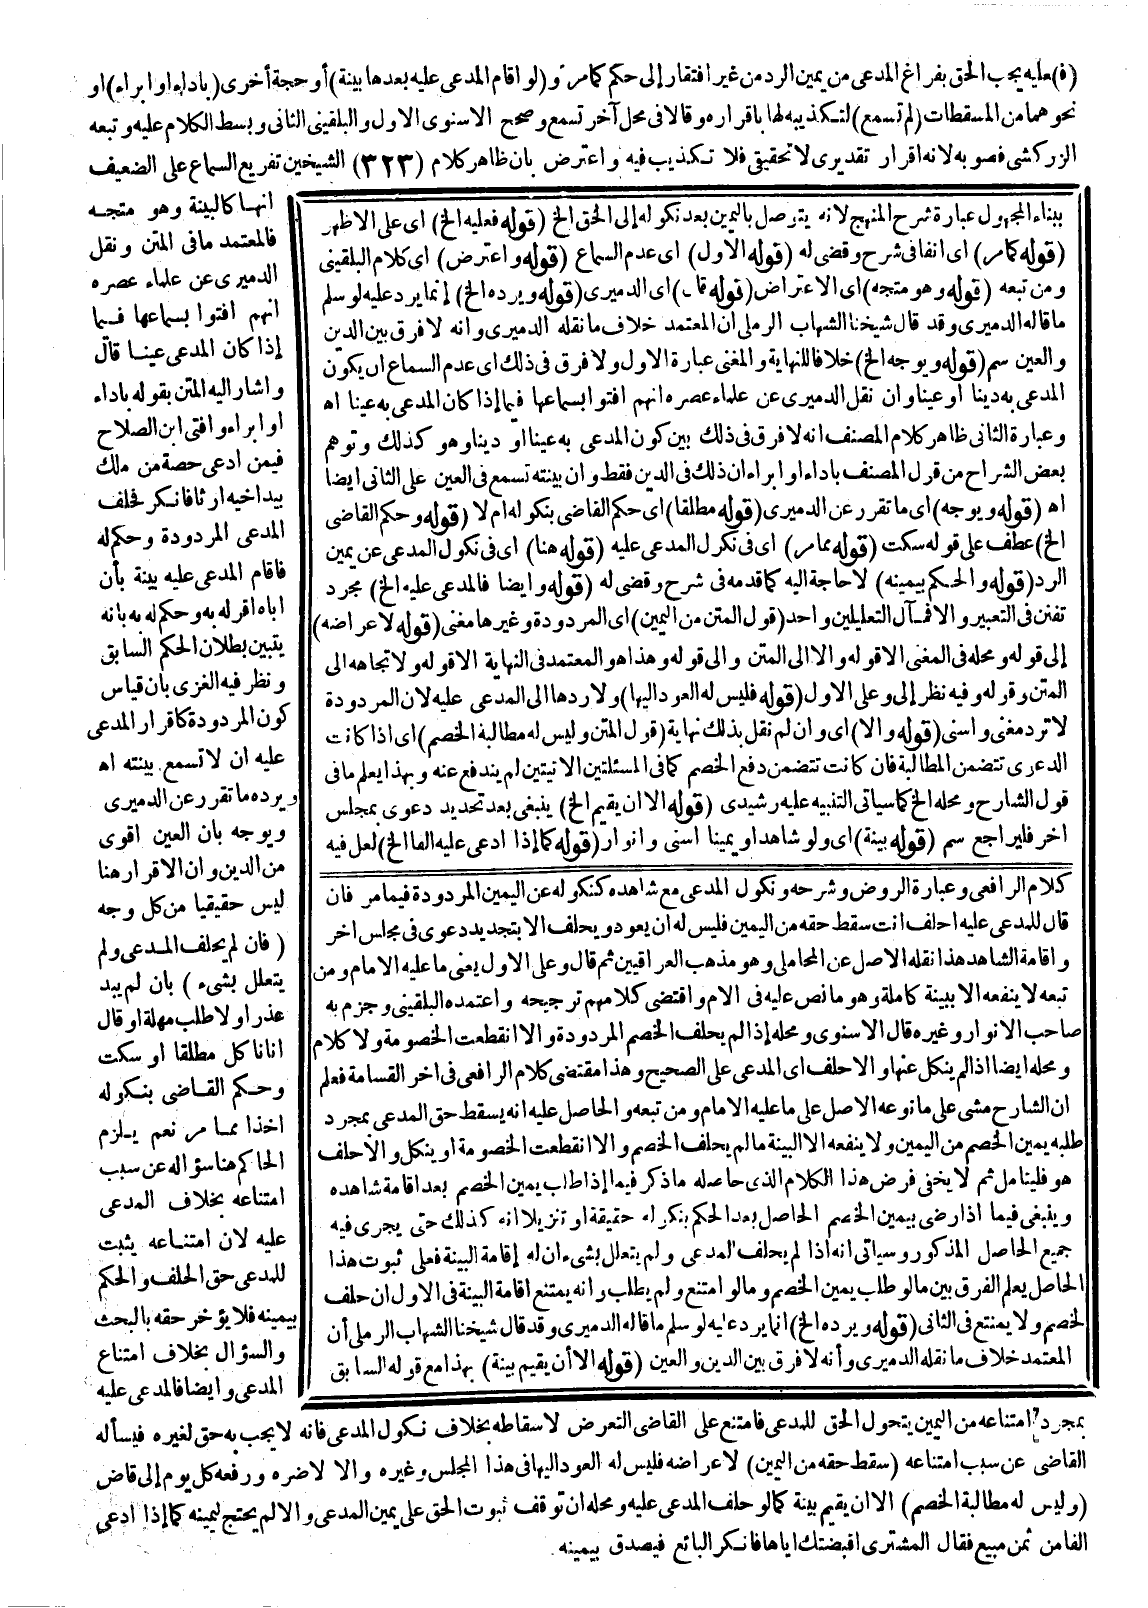 (ف)عليه يجب الحق بفراغ المدعى من يمين الرد من غير افتقار إلى حكم كما مر و(لو اقام المدعى عليه بعدها بينة)أو حجة أخرى(باداء او ابراء)او
نحوهما من المسقطات(لم تسمع)لتكذيبه لها باقراره وقالا فى محل آخر تسمع وصحح الاسنوى الاول والبلقينى الثانى وبسط الكلام عليه وتبعه
الزركشى فصوبه لانه اقرار تقديرى لا تحقيقى فلا تكذيب فيه واعترض بان ظاهر كلام (٣٢٣) الشيخين تفريع السماع على الضعيف
انها كالبينة وهو متجه
فالمعتمد ما فى المتن ونقل
الدميرى عن علماء عصره
انهم افتوا بسماعها فيما
إذا كان المدعى عينا قال
واشار اليه المتن بقوله باداء
او ابراء وافتى ابن الصلاح
فيمن ادعى حصة من ملك
بيد اخيه ارثا فانكر فحلف
المدعى المردودة وحكم له
فاقام المدعى عليه بينة بأن
اباه اقر له به وحكم له به بانه
يتبين بطلان الحكم السابق
ونظر فيه الغزى بان قياس
كون المردودة كاقرار المدعى
عليه ان لا تسمع بينته اه
ويرده ما تقرر عن الدميرى
ويوجه بان العين اقوى
من الدين وان الاقرار هنا
ليس حقيقيا من كل وجه
( فان لم يحلف المدعى ولم
يتعلل بشىء ) بان لم يبد
عذر او لا طلب مهلة او قال
انا ناكل مطلقا او سكت
وحكم القاضى بنكوله
اخذا مما مر نعم يلزم
الحاكم هنا سؤاله عن سبب
امتناعه بخلاف المدعى
عليه لان امتناعه يثبت
للمدعى حق الحلف والحكم
بيمينه فلا يؤخر حقه بالبحث
والسؤال بخلاف امتناع
المدعى وايضا فالمدعى عليه
بمجرد امتناعه من اليمين يتحول الحق للمدعى فامتنع على القاضى التعرض لاسقاطه بخلاف نكول المدعى فانه لا يجب به حق لغيره فيسأله
القاضى عن سبب امتناعه (سقط حقه من اليمين) لاعراضه فليس له العود اليها فى هذا المجلس وغيره والا لاضره ورفعه كل يوم إلى قاض
(وليس له مطالبة الخصم) الا ان يقيم بينة كما لو حلف المدعى عليه ومحله ان توقف ثبوت الحق على يمين المدعى والا لم يحتج ليمينه كما إذا ادعى
الفا من ثمن مبيع فقال المشترى اقبضتك اياها فانكر البائع فيصدق بيمينه
ببناء المجهول عبارة شرح المنهج لانه يتوصل باليمين بعد نكوله إلى الحق الخ (قوله فعليه الخ) اى على الاظهر
(قوله كما مر) اى انفا فى شرح وقضى له (قوله الاول) اى عدم السماع (قوله واعترض) اى كلام البلقينى
ومن تبعه (قوله وهو متجه)اى الاعتراض(قوله قال)اى الدميرى(قوله ويرده الخ)إنما يرد عليه لو سلم
ما قاله الدميرى وقد قال شيخنا الشهاب الرملى ان المعتمد خلاف ما نقله الدميرى وانه لا فرق بين الدين
والعين سم(قوله ويوجه الخ)خلافا للنهاية والمغنى عبارة الاول ولا فرق فى ذلك اى عدم السماع ان يكون
المدعى به دينا او عينا وان نقل الدميرى عن علماء عصره انهم افتوا بسماعها فيما إذا كان المدعى به عينا اه
وعبارة الثانى ظاهر كلام المصنف انه لا فرق فى ذلك بين كون المدعى به عينا او دينا وهو كذلك وتوهم
بعض الشراح من قول المصنف باداء او ابراء ان ذلك فى الدين فقط وان بينته تسمع فى العين على الثانى ايضا
اه (قوله ويوجه)اى ما تقرر عن الدميرى(قوله مطلقا)اى حكم القاضى بنكوله ام لا (قوله وحكم القاضى
الخ)عطف على قوله سكت (قوله مما مر) اى فى نكول المدعى عليه (قوله هنا) اى فى نكول المدعى عن يمين
الرد(قوله والحكم بيمينه) لا حاجة اليه كما قدمه فى شرح وقضى له (قوله وايضا فالمدعى عليه الخ) مجرد
تفنن فى التعبير والا فمآل التعليلين واحد(قول المتن من اليمين)اى المردودة وغيرها مغنى(قوله لاعراضه)
إلى قوله ومحله فى المغنى الا قوله والا الى المتن والى قوله وهذا هو المعتمد فى النهاية الا قوله ولاتجاهه الى
المتن وقوله وفيه نظر إلى وعلى الاول(قوله فليس له العود اليها)ولا ردها الى المدعى عليه لان المردودة
لا ترد مغنى واسنى(قوله والا)اى وان لم نقل بذلك نهاية(قول المتن وليس له مطالبة الخصم)اى اذا كانت
الدعوى تتضمن المطالبة فان كانت تتضمن دفع الخصم كما فى المسئلتين الاتيتين لم يندفع عنه وبهذا يعلم ما فى
قول الشارح ومحله الخ كما سياتى التنبيه عليه رشيدى (قوله الا ان يقيم الخ) ينبغى بعد تجديد دعوى بمجلس
اخر فليراجع سم (قوله بينة)اى ولو شاهدا ويمينا اسنى وانوار(قوله كما إذا ادعى عليه الفا الخ)لعل فيه
كلام الرافعى وعبارة الروض وشرحه ونكول المدعى مع شاهده كنكوله عن اليمين المردودة فيما مر فان
قال للمدعى عليه احلف انت سقط حقه من اليمين فليس له ان يعود ويحلف الا بتجديد دعوى فى مجلس اخر
واقامة الشاهد هذا نقله الاصل عن المحاملى وهو مذهب العراقيين ثم قال وعلى الاول يعنى ما عليه الامام ومن
تبعه لا ينفعه الا ببينة كاملة وهو ما نص عليه فى الام واقتضى كلامهم ترجيحه واعتمده البلقينى وجزم به
صاحب الانوار وغيره قال الاسنوى ومحله إذا لم يحلف الخصم المردودة والا انقطعت الخصومة ولا كلام
ومحله ايضا اذا لم ينكل عنها والا حلف اى المدعى على الصحيح وهذا مقتضى كلام الرافعى فى اخر القسامة فعلم
ان الشارح مشى على ما نوعه الاصل على ما عليه الامام ومن تبعه والحاصل عليه انه يسقط حق المدعى بمجرد
طلبه يمين الخصم من اليمين ولا ينفعه الا البينة ما لم يحلف الخصم والا انقطعت الخصومة او ينكل والا حلف
هو فليتامل ثم لا يخفى فرض هذا الكلام الذى حاصله ما ذكر فيما إذا طلب يمين الخصم بعد اقامة شاهده
وينبغى فيما اذا رضى بيمين الخصم الحاصل بعد الحكم بنكوله حقيقة او تنزيلا انه كذلك حتى يجرى فيه
جميع الحاصل المذكور وسياتى انه اذا لم يحلف المدعى ولم يتعلل بشىء ان له إقامة البينة فعلى ثبوت هذا
الحاصل يعلم الفرق بين ما لو طلب يمين الخصم وما لو امتنع ولم يطلب وانه يمتنع اقامة البينة فى الاول ان حلف
الخصم ولا يمتنع فى الثانى(قوله ويرده الخ)انما يرد عليه لو سلم ما قاله الدميرى وقد قال شيخنا الشهاب الرملى أن
المعتمد خلاف ما نقله الدميرى وأنه لا فرق بين الدين والعين (قوله الا أن يقيم بينة) بهذا مع قوله السابق